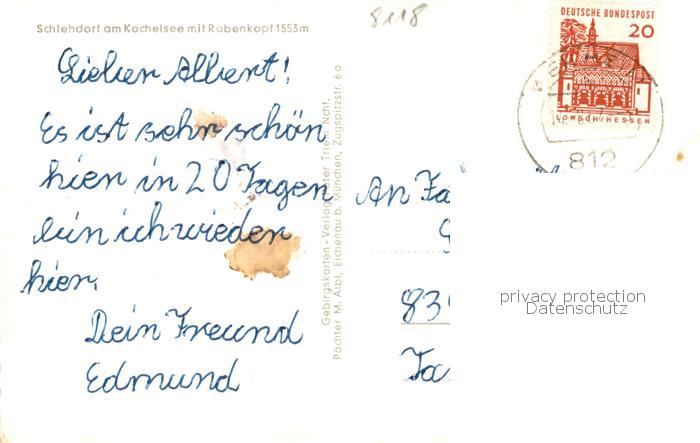 Schlehdorf am Kochelsee mit Rabenkopf 1553m
8118
DEUTSCHE BUNDESPOST
20
LORSCH/HESSEN
812
Lieber Albert!
Es ist sehr schön
hier in 20 Tagen
bin ich wieder
hier.
Dein Freund
Edmund
Gebirgskarten - Verlag Peter Triem Nchf.
Pächter M. Aibl, Eichenau b. München, Zugspitzstr. 6a
An
privacy protection
Datenschutz